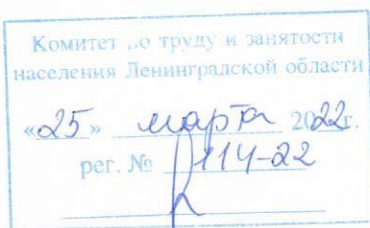 Комитет по труду и занятости
населения Ленинградской области
«25» марта 2022г.
рег. № 114-22